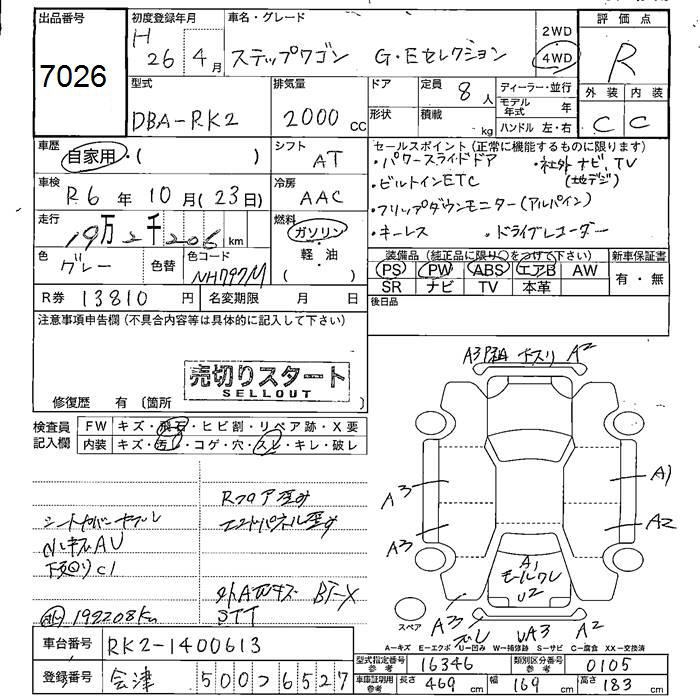 出品番号 7026
初度登録年月 H 26年 4月
車名・グレード ステップワゴン G・Eセレクション
2WD 4WD
評価点 R
外装 内装
C C
型式 DBA-RK2
排気量 2000 cc
ドア 形状
定員 8人
積載 kg
ディーラー・並行
モデル年式 年
ハンドル 左・右
車歴 自家用・( )
シフト AT
車検 R6年 10月(23日)
冷房 AAC
走行 19万2千206 km
燃料 ガソリン・軽・油 ( )
色 グレー
色替
色コード NH797M
R券 13810 円
名変期限 月 日
セールスポイント(正常に機能するものに限ります)
・パワースライドドア ・社外ナビ、TV
(地デジ)
・ビルトインETC
・フリップダウンモニター(アルパイン)
・キーレス ・ドライブレコーダー
装備品(純正品に限り○をつけて下さい)
PS PW ABS エアB AW
SR ナビ TV 本革
新車保証書
有・無
後日品
注意事項申告欄(不具合内容等は具体的に記入して下さい)
売切りスタート
SELLOUT
修復歴 有 (箇所 )
検査員記入欄
FW キズ・飛石・ヒビ割・リペア跡・X要
内装 キズ・汚レ・コゲ・穴・スレ・キレ・破レ
Rフロア歪み
エンドパネル歪み
下回りC1
192208Km
車台番号 RK2-1400613
登録番号 会津 500 そ 6527
A3 A2
A3 A1
A3 A2
A1
モールワレ
U2
A3 UA3 A2
スペア
A-キズ E-エクボ U-凹み W-補修跡 S-サビ C-腐食 XX-交換済
型式指定番号 参考 16346
類別区分番号 参考 0105
車庫証明用 参考 長さ 469 cm 幅 169 cm 高さ 183 cm